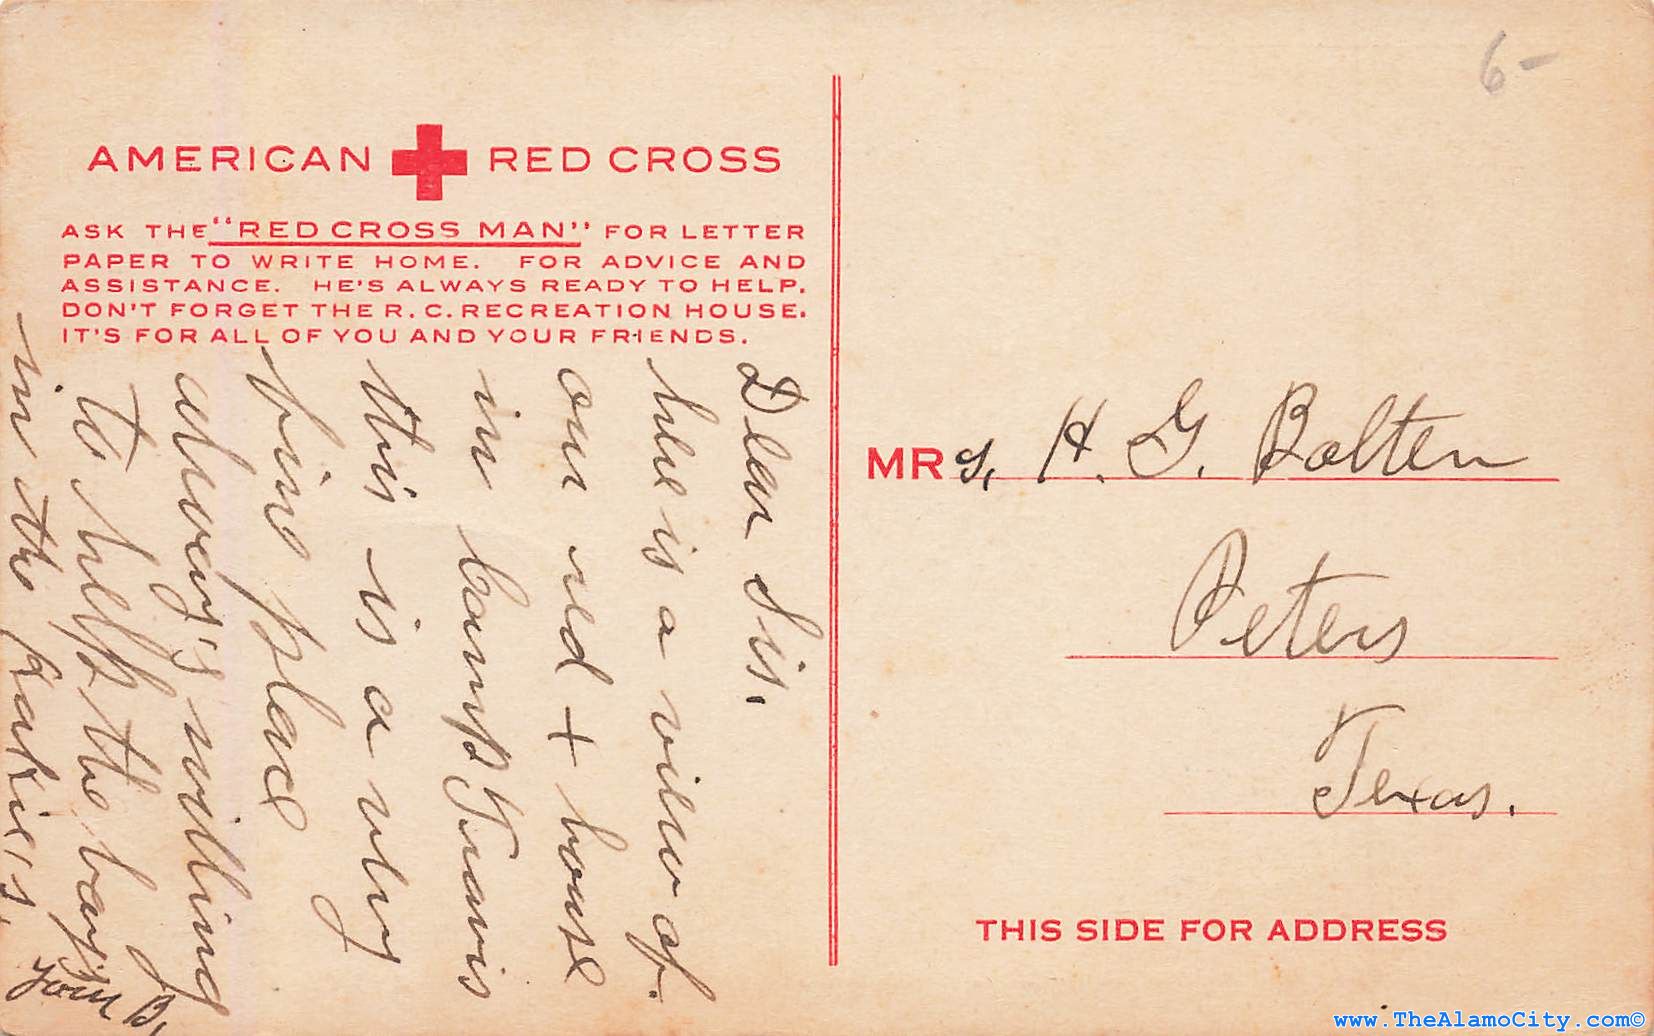 6-
AMERICAN RED CROSS
ASK THE "RED CROSS MAN" FOR LETTER
PAPER TO WRITE HOME. FOR ADVICE AND
ASSISTANCE. HE'S ALWAYS READY TO HELP.
DON'T FORGET THE R. C. RECREATION HOUSE.
IT'S FOR ALL OF YOU AND YOUR FRIENDS.
Dear Sis,
hee is a view of
our red + house
in Camp Travis
this is a very
fine place
alway's willing
to help the boy's
in the Kakie's.
your B,
MRs, H. G. Bolten
Peters
Texas.
THIS SIDE FOR ADDRESS
www.TheAlamoCity.com©